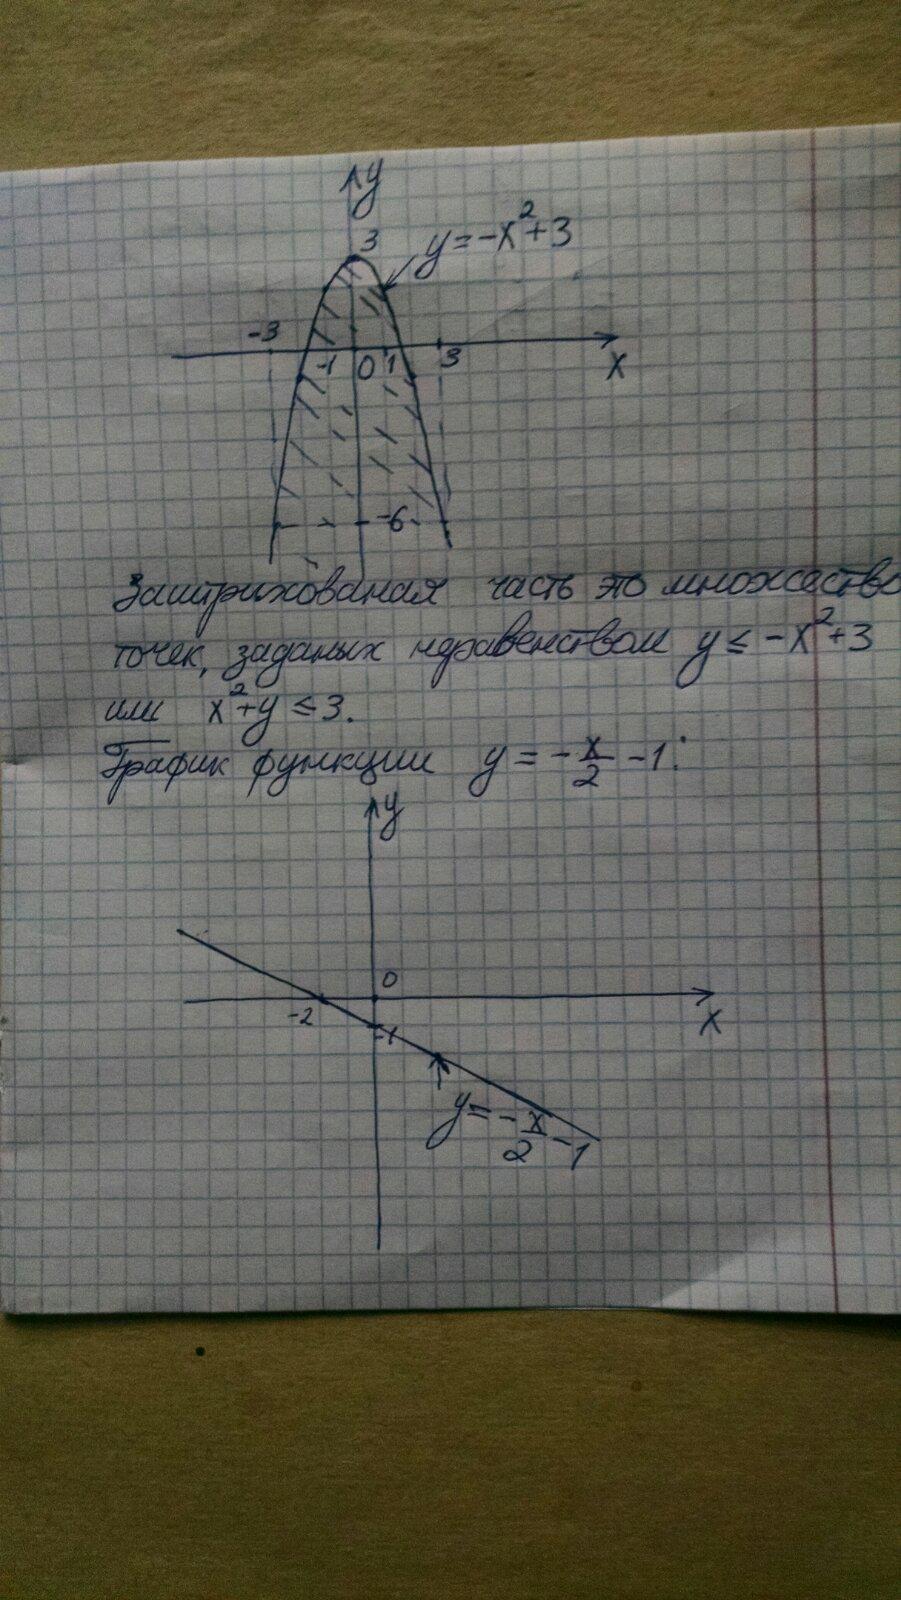 y
3
y=-x²+3
-3
-1 0 1 3
x
-6
Заштрихованая часть это множество
точек, заданых неравенством y ≤ -x²+3
или x²+y ≤ 3.
График функции y = -x/2 -1:
y
0
-2
x
-1
y = -x/2 -1